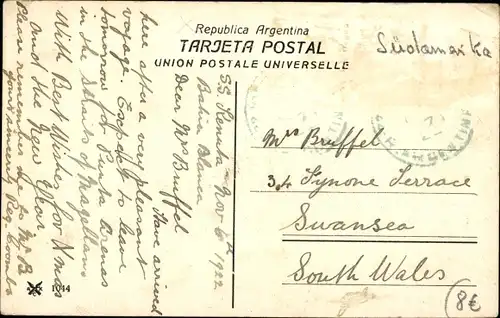 Republica Argentina
TARJETA POSTAL
UNION POSTALE UNIVERSELLE
Südamerika
SS. Renuta Nov 6th 1922
Bahia Blanca
Dear Mrs Bruffel
Have arrived
here after a very pleasant
voyage. Expect to leave
tomorrow for Punta Arenas
in the Straits of Magellan
With Best Wishes for Xmas
And the New Year
Please remember me to Mr B
yours sincerely Reg. Coombs
Mrs Bruffel
34 Terrace
Swansea
South Wales
ARGENTINE
1014
8€